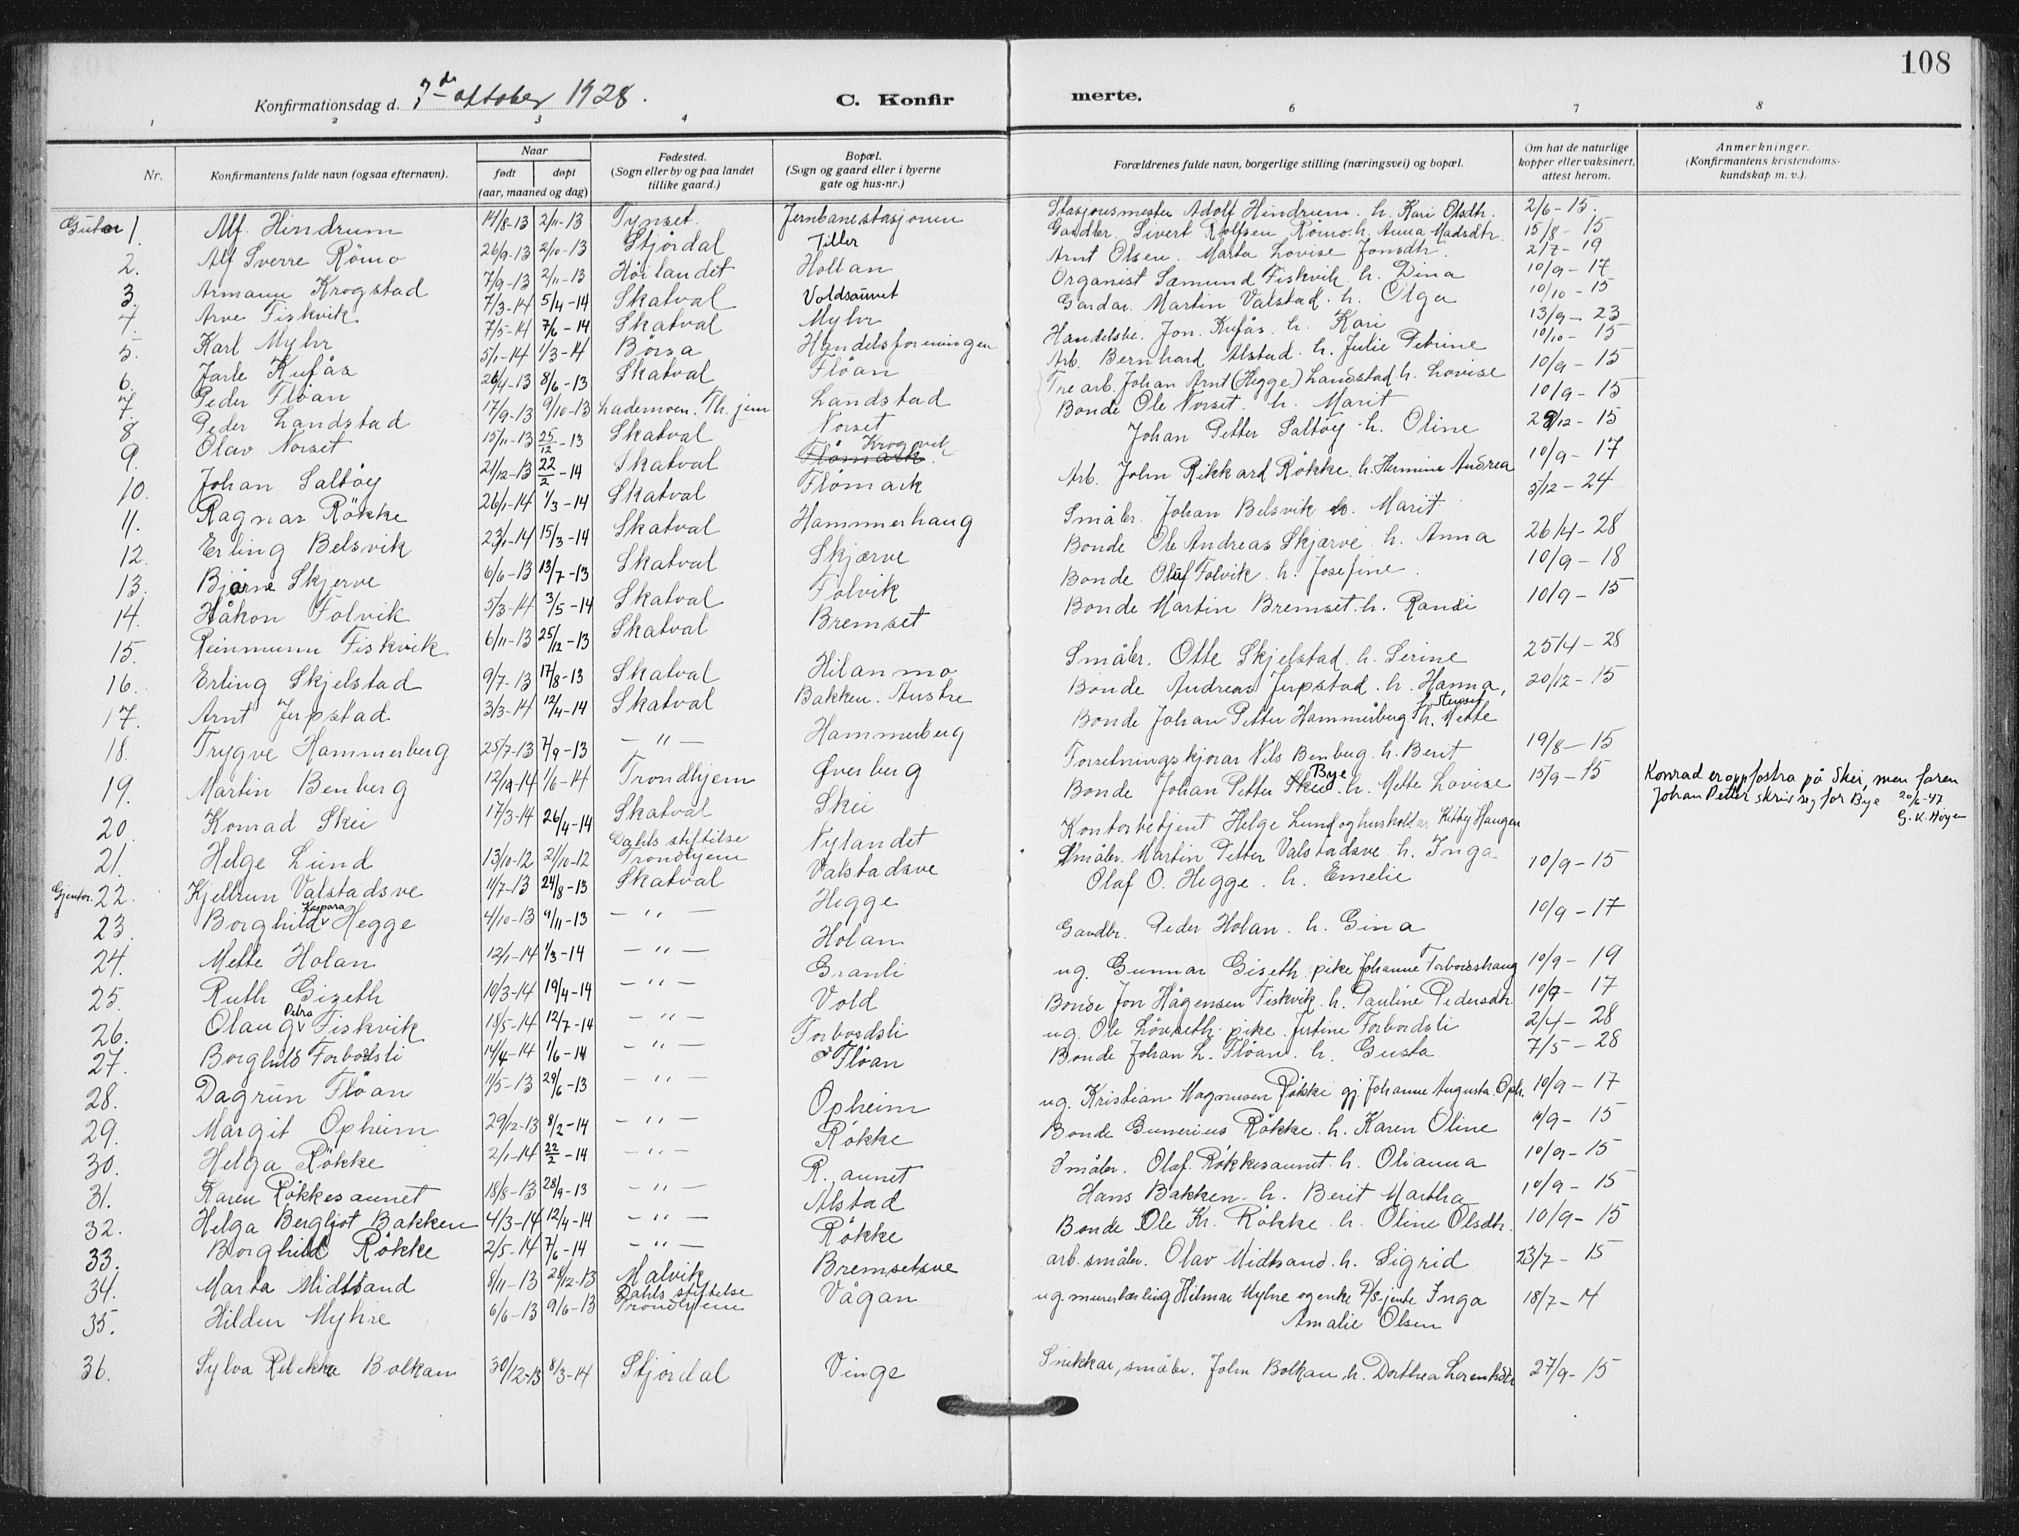 108
Konfirmationsdag d. 7de oktober 1928.
C. Konfirmerte.
1 2 3 4 6 7 8
Nr.
Konfirmantens fulde navn (ogsaa efternavn).
Naar
født døpt
(aar, maaned og dag)
Fødested.
(Sogn eller by og paa landet
tillike gaard.)
Bopæl.
(Sogn og gaard eller i byerne
gate og hus-nr.)
Forældrenes fulde navn, borgerlige stilling (næringsvei) og bopæl.
Om hat de naturlige
kopper eller vaksinert,
attest herom.
Anmerkninger.
(Konfirmantens kristendoms-
kundskap m. v.).
Gutar 1. Alf Hindrum 14/8-13 2/11-13 Tynset. Jernbanestasjonen Stasjonsmester Adolf Hindrum. h. Kari Olsdtr. 2/6-15.
2. Alf Sverre Römo 26/9-13 2/10-13 Stjørdal Tiller Gardbr. Sivert Rolfsen Römo. h. Anna Madsdtr. 15/8-15
3. Armann Krogstad 7/9-13 2/11-13 Hoslandet Hollan Arnt Olsen. Marta Lovise Jonsdtr. 2/7-19
4. Arve Fiskvik 7/3-14 5/4-14 Skatval Voldsaunet Organist Sæmund Fiskvik h. Dina 10/9-17
5. Karl Myhr 7/5-14 7/6-14 Skatval Myhr Gardar. Martin Valstad. h. Olga 10/10-15
6. Jarle Kufås 5/1-14 1/3-14 Börsa Handelsforeningen Handelsbe. Jon Kufås. h. Kari 13/9-23
7. Peder Flöan 26/4-13 8/6-13 Skatval Flöan Arb. Bernhard Alstad. h. Julie Petrine 10/10-15
8. Peder Landstad 17/9-13 9/10-13 Lademoen. Th.jem Landstad Tre arb. Johan Arnt (Hegge) Landstad h. Lovise 10/9-15
9. Olav Norset 15/11-13 25/12-13 Skatval Norset Bonde Ole Norset. h. Marit 10/9-15
10. Johan Saltöy 21/12-13 22/2-14 Skatval Flömark Krogvik Johan Petter Saltöy. h. Oline 29/12-15
11. Ragnar Rökke 26/1-14 1/3-14 Skatval Flömark Arb. John Rikkard Rökke. h. Hermine Andrea 10/9-17
12. Erling Belsvik 23/1-14 15/3-14 Skatval Hammerhaug Småbr. Johan Belsvik h. Marit 5/12-24
13. Bjarne Skjerve 6/6-13 13/7-13 Skatval Skjærve Bonde Ole Andreas Skjærve h. Anna 26/4-28
14. Håkon Folvik 5/3-14 3/5-14 Skatval Folvik Bonde Oluf Folvik. h. Josefine. 10/9-18
15. Reinmunn Fiskvik 6/11-13 25/12-13 Skatval Bremset Bonde Martin Bremset. h. Randi 10/9-15
16. Erling Skjelstad 9/7-13 17/8-13 Skatval Hilanmo Småbr. Otte Skjelstad. h. Serine 25/4-28
17. Arnt Jerpstad 3/3-14 12/4-14 Skatval Bakken. Austre Bonde Andreas Jerpstad. h. Hanna, 20/12-15
18. Trygve Hammerberg 25/7-13 7/9-13 - " - Hammerberg Bonde Johan Petter Hammerberg h. Mette
19. Martin Benberg 12/12-14 1/6-14 Trondhjem Øverberg Forretningskjorar Nils Benberg. h. Berit 19/8-15
20. Konrad Skei 17/3-14 26/4-14 Skatval Skei Bonde Johan Petter Skei Bye. h. Mette Lovise 15/9-15 Konrad er oppfostra på Skei, men faren
Johan Petter skriv seg for Bye 20/6-47
G. K. Høyer
21. Helge Lund 13/10-12 21/10-12 Dahls stiftilse Trondhjem Nylandet Kontorbetjent Helge Lund og husholder Kitty Haugen
Gjentor. 22. Kjellrun Valstadsve 11/7-13 24/8-13 Skatval Valstadsve Småbr. Martin Petter Valstadsve. h. Inga 10/9-15
23. Borghild Kaspara Hegge 4/10-13 9/11-13 - " - Hegge Olaf O. Hegge. h. Emelie
24. Mette Holan 12/1-14 1/3-14 - " - Holan Gardbr. Peder Holan. h. Gina 10/9-17
25. Ruth Giseth 10/3-14 19/4-14 - " - Granli ug. Gunnar Giseth pike Johanne Forbordshaug 10/9-19
26. Olaug Petra Fiskvik 18/5-14 12/7-14 - " - Vold Bonde Jon Hågensen Fiskvik. h. Pauline Pedersdtr. 10/9-17
27. Borghild Forbordsli 14/4-14 1/6-14 - " - Forbordsli ug. Ole Lövseth. pike. Jutine Forbordsli 2/4-28
28. Dagrun Flöan 11/5-13 29/6-13 - " - Flöan Bonde Johan L. Flöan. h. Gusta 7/5-28
29. Margit Opheim 29/12-13 8/2-14 - " - Opheim ug. Kristian Magnusen Rökke gj. Johanne Augusta Oph. 10/9-17
30. Helga Rökke 2/1-14 22/2-14 - " - Rökke Bonde Gunerius Rökke. h. Karen Oline 10/9-15
31. Karen Rökkesaunet 18/8-13 28/9-13 - " - R. aunet Småbr. Olaf Rökkesaunet. h. Olianna 10/9-15
32. Helga Bergljot Bakken 4/3-14 12/4-14 - " - Alstad Hans Bakken. h. Berit Martha 10/9-15
33. Borghild Rökke 2/5-14 7/6-14 - " - Rökke Bonde Ole Kr. Rökke. h. Oline Olsdtr. 10/9-15
34. Marta Midtsand 8/11-13 28/12-13 Malvik Bremsetsve arb. småbr. Olav Midtsand. h. Sigrid 23/7-15
35. Hildur Myhre 6/6-13 9/6-13 Dahls stiftelse Trondhjem Vågan ug. murerlærling Hilmar Myhre og enke Inga 18/7-14
Amalie Olsen
36. Sylva Rebekka Bolkan 30/12-13 8/3-14 Stjørdal Vinge Snekkar, småbr. John Bolkan. h. Dorthea Lorentsdtr 27/9-15